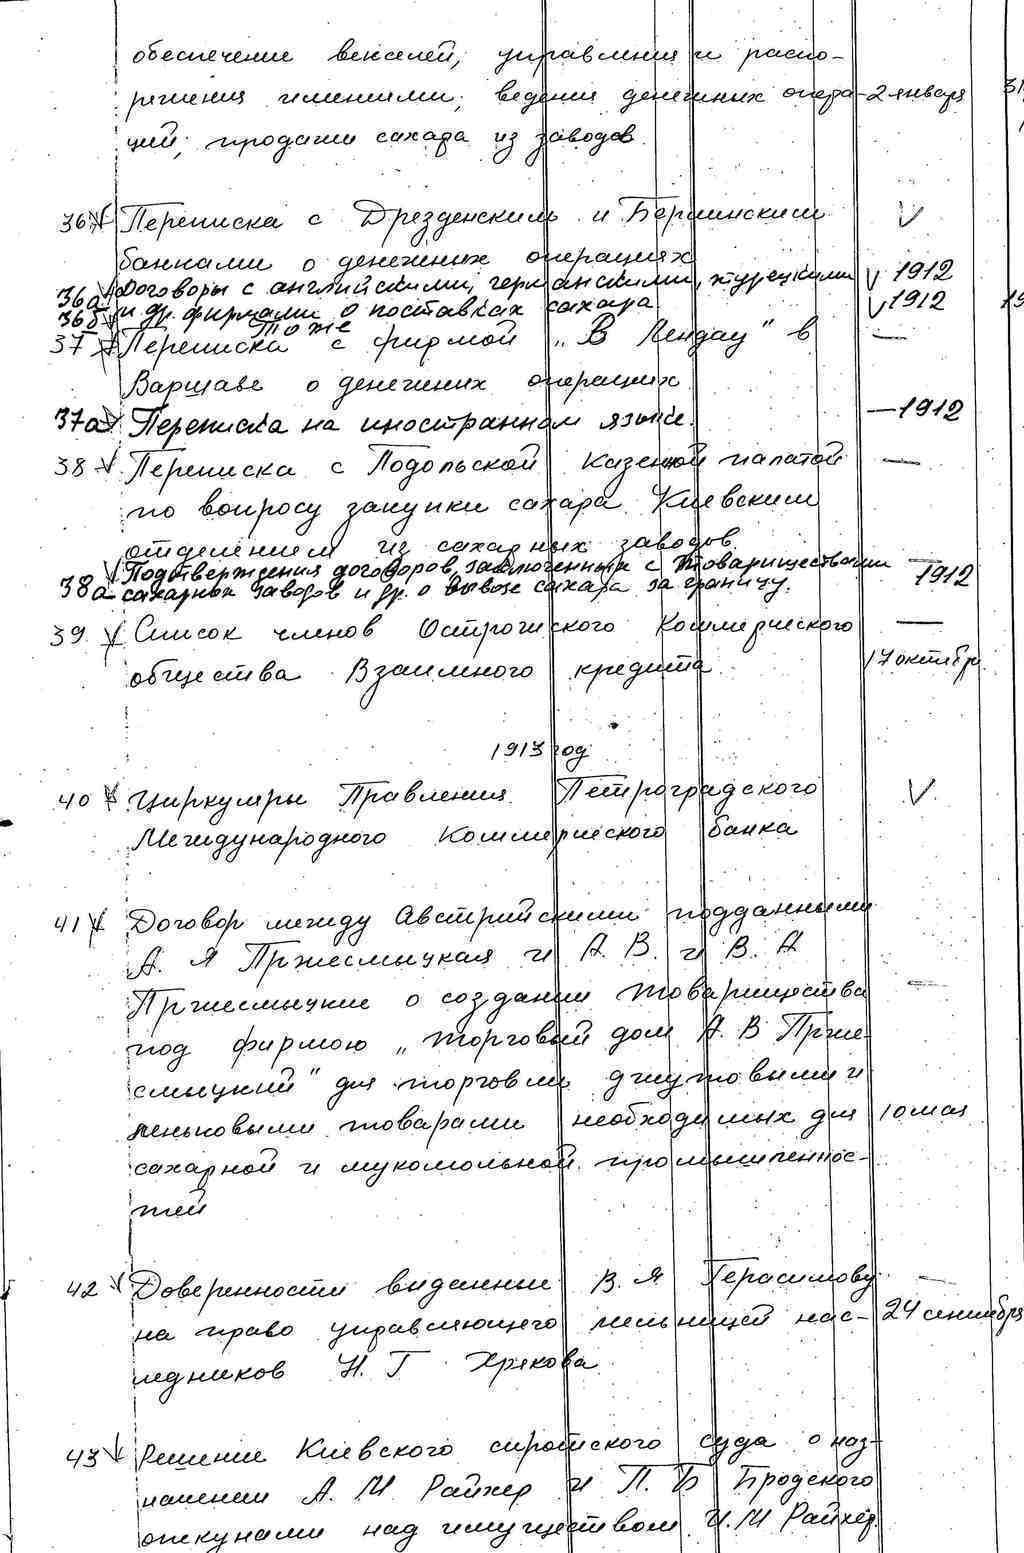 обеспечение векселей, управления и распо-
ряжения имениями, ведения денежных опера- 2 января 31
ций, продажи сахара из заводов
36 Переписка с Дрезденским и Берлинским V
банками о денежных операциях
36а Договоры с английскими, германскими, турецкими V 1912
36б и др. фирмами о поставках сахара V 1912 19
То же
37 Переписка с фирмой „В Лендау" в —
Варшаве о денежных операциях
37а Переписка на иностранном языке. — 1912
38 Переписка с Подольской казенной палатой —
по вопросу закупки сахара Киевским
отделением из сахарных заводов
Подтверждения договоров, заключенных с товариществами
38а сахарных заводов и др. о вывозе сахара за границу. 1912
39 Список членов Острожского Коммерческого —
общества Взаимного кредита 17 октябр
1913 год
40 Циркуляры Правления Петроградского V
Международного Коммерческого банка
41 Договор между Австрийскими подданными
А. Я Пржесмыцкая и А. В. и В. А
Пржесмыцкие о создании товарищества —
под фирмою „торговый дом А. В Прже-
смыцкий" для торговли джутовыми и
пеньковыми товарами необходимых для 10 мая
сахарной и мукомольной промышленнос-
тей
42 Доверенности выданные В. Я Герасимову —
на право управляющего мельницей нас- 24 сентября
ледников Н. Г Хрякова
43 Решение Киевского сиротского суда о наз-
начении А. М. Райхер и П. Б Бродского
опекунами над имуществом И. М Райхер.